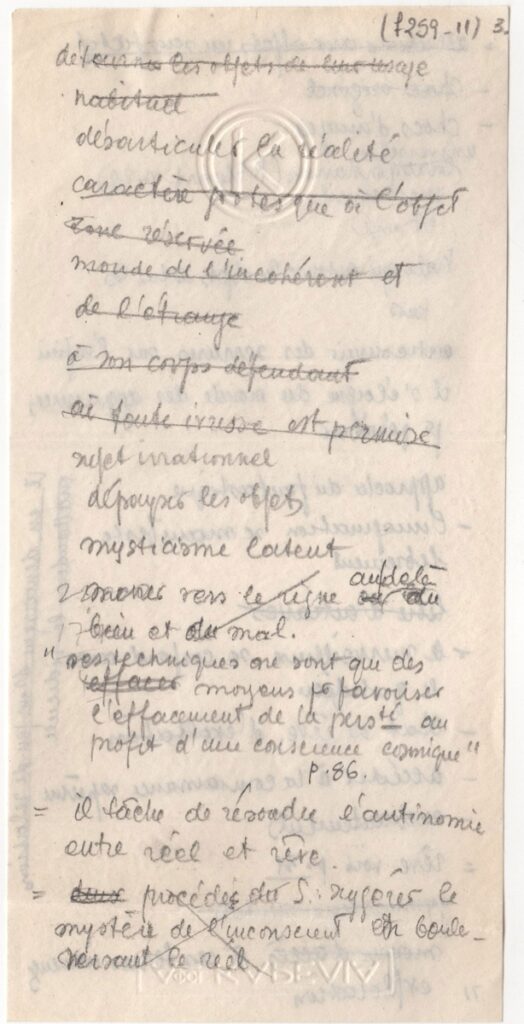 (f259-11) 3.
détourner les objets de leur usage
habituel
désarticuler la réalité
caractère grotesque de l'objet
zone réservée
monde de l'incohérent et
de l'étrange
à son corps défendant
où toute ivresse est permise
sujet irrationnel
dépayser les objets
mysticisme latent
vers le règne au delà du
bien et du mal.
" ses techniques ne sont que des
effacer moyens pr favoriser
l'effacement de la persté au
profit d'une conscience cosmique"
p.86.
= il tâche de résoudre l'antinomie
entre réel et rêve.
" deux procédés du S: suggérer le
mystère de l'inconscient en boule-
versant le réel